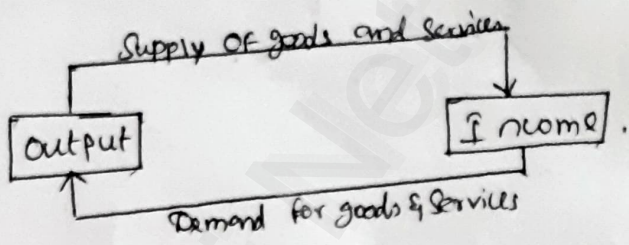 Supply Of goods and Services
output
Income
Demand for goods & Services